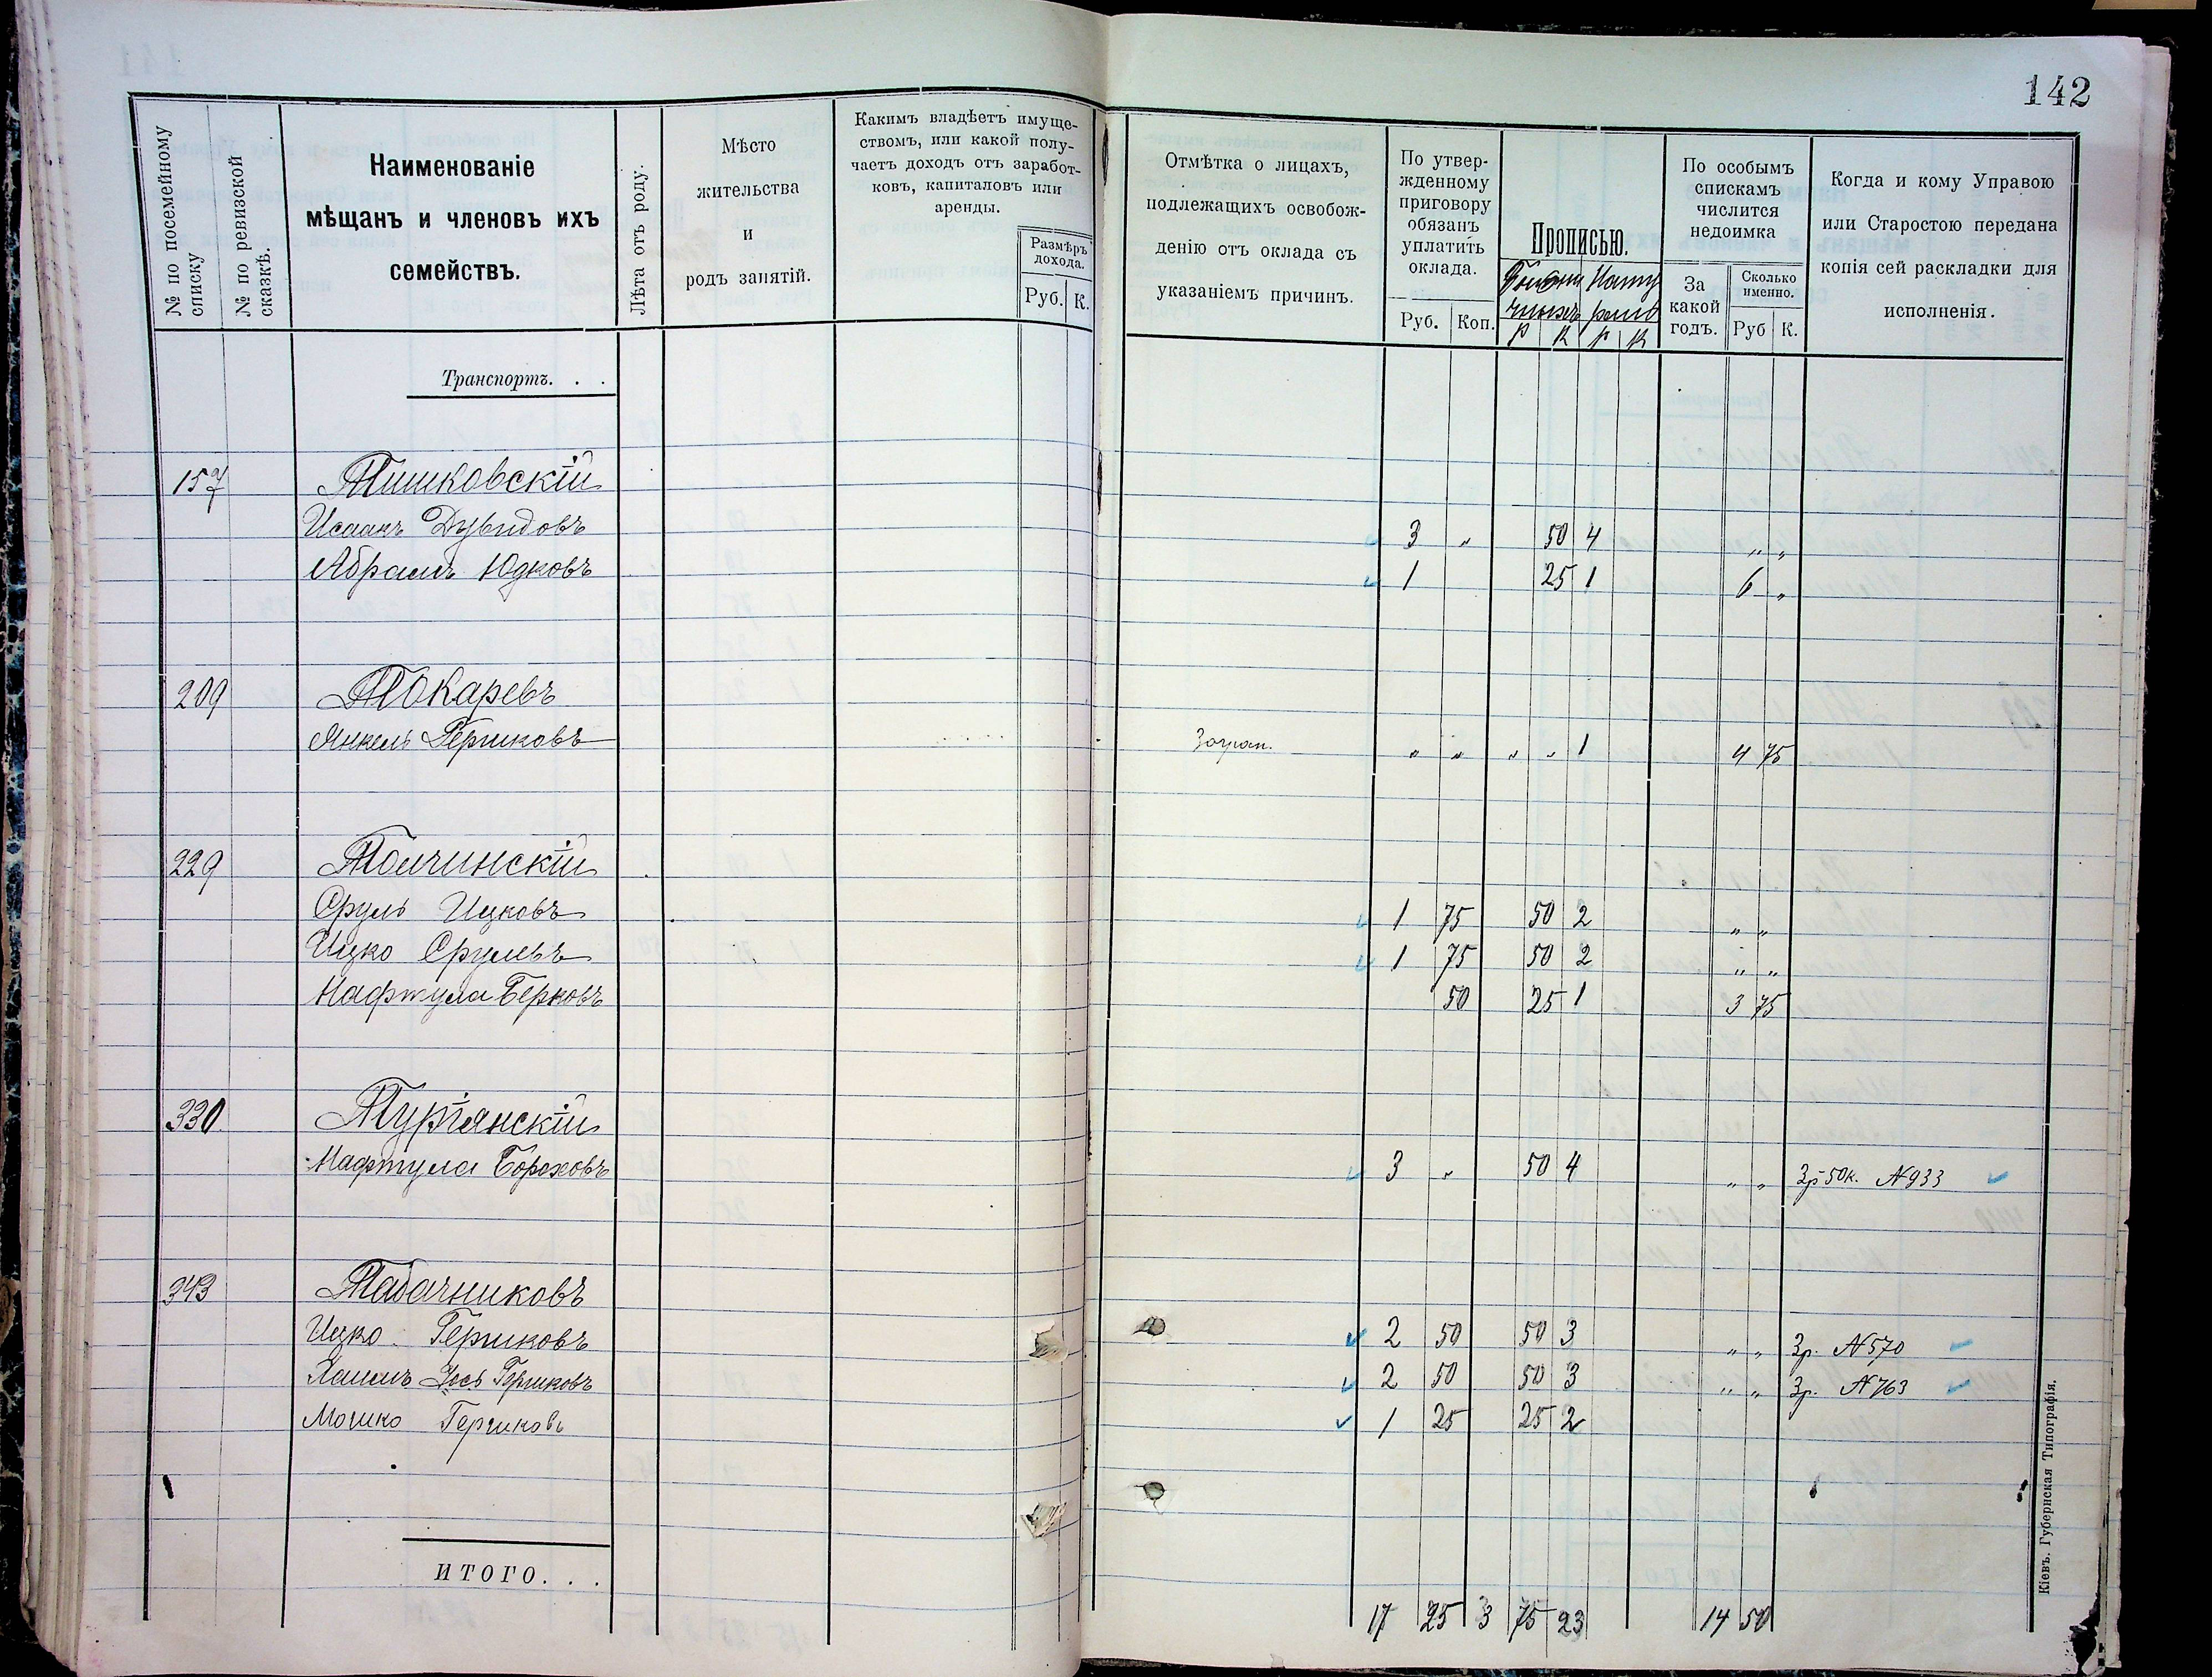 142
№ по посемейному списку
№ по ревизской сказкѣ.
Наименованіе
мѣщанъ и членовъ ихъ
семействъ.
Лѣта отъ роду.
Мѣсто
жительства
и
родъ занятій.
Какимъ владѣетъ имуще-
ствомъ, или какой полу-
чаетъ доходъ отъ заработ-
ковъ, капиталовъ или
аренды.
Размѣръ
дохода.
Руб. К.
Отмѣтка о лицахъ,
подлежащихъ освобож-
денію отъ оклада съ
указаніемъ причинъ.
По утвер-
жденному
приговору
обязанъ
уплатить
оклада.
Руб. Коп.
Прописью.
Р К Р К
По особымъ
спискамъ
числится
недоимка
За
какой
годъ.
Сколько
именно.
Руб К.
Когда и кому Управою
или Старостою передана
копія сей раскладки для
исполненія.
Транспортъ. . .
157 Тишковскій
Исаакъ Дувидовъ 3 " 50 4 " "
Абрамъ Юдковъ 1 25 1 6 "
209 Токаревъ
Янкель Гершковъ Загран. " " " " 1 4 75
229 Толчинскій
Сруль Ицковъ 1 75 50 2 " "
Ицко Срулевъ 1 75 50 2 " "
Нафтула Берковъ 50 25 1 3 75
330 Турянскій
Нафтула Бороховъ 3 " 50 4 " " 3р 50к. № 933
343 Табачниковъ
Ицко Гершковъ 2 50 50 3 " " 3р. № 570
Хаимъ Іось Гершковъ 2 50 50 3 " " 3р. № 763
Мошко Гершковъ 1 25 25 2
ИТОГО. . .
17 25 3 75 23 14 50
Кіевъ. Губернская Типографія.